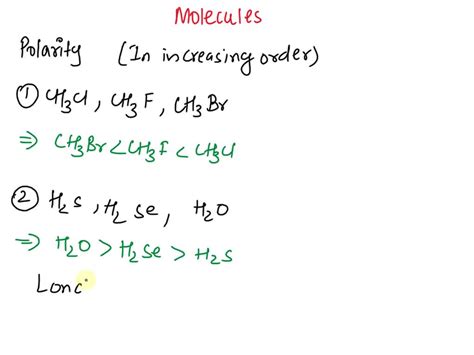 Molecules
Polarity (In increasing order)
① CH3Cl, CH3F, CH3Br
⇒ CH3Br < CH3F < CH3Cl
② H2S, H2Se, H2O
⇒ H2O > H2Se > H2S
Lonc